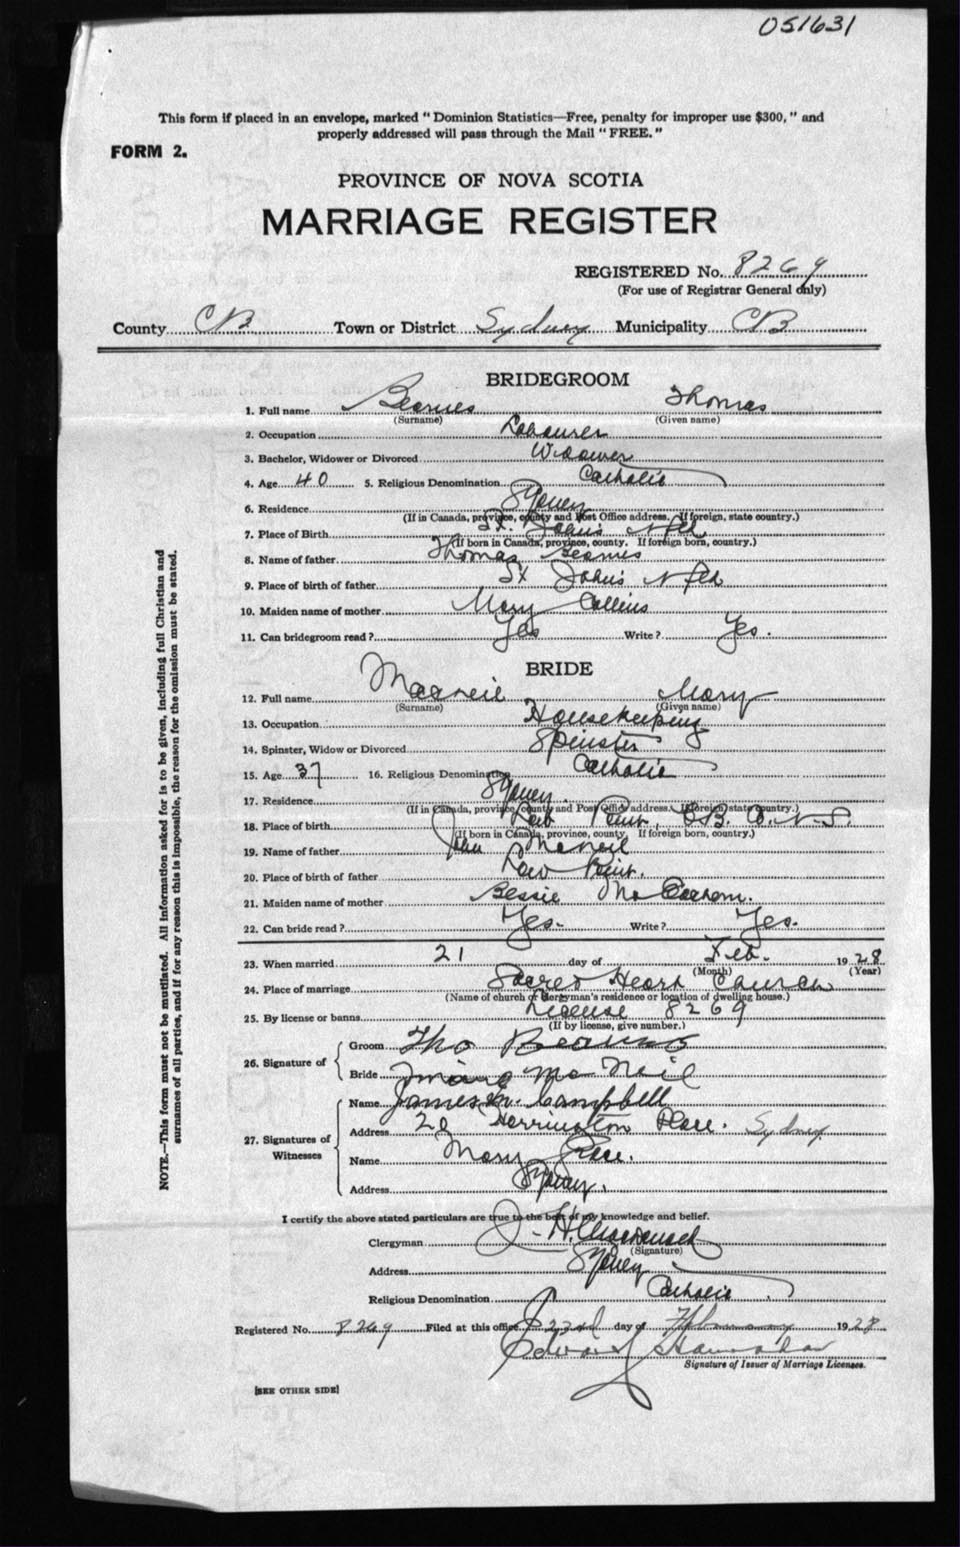 051631
This form if placed in an envelope, marked "Dominion Statistics—Free, penalty for improper use $300," and
properly addressed will pass through the Mail "FREE."
FORM 2.
PROVINCE OF NOVA SCOTIA
MARRIAGE REGISTER
REGISTERED No. 8269
(For use of Registrar General only)
County CB Town or District Sydney Municipality CB
BRIDEGROOM
1. Full name Bearnes Thomas
(Surname) (Given name)
2. Occupation Labourer
3. Bachelor, Widower or Divorced Widower
4. Age 40 5. Religious Denomination Catholic
6. Residence Sydney
(If in Canada, province, county and Post Office address. If foreign, state country.)
7. Place of Birth St. John's Nfld
(If born in Canada, province, county. If foreign born, country.)
8. Name of father Thomas Bearnes
9. Place of birth of father St John's Nfld
10. Maiden name of mother Mary Collins
11. Can bridegroom read? Yes Write? Yes.
BRIDE
12. Full name MacNeil Mary
(Surname) (Given name)
13. Occupation Housekeeping
14. Spinster, Widow or Divorced Spinster
15. Age 37 16. Religious Denomination Catholic
17. Residence Sydney
(If in Canada, province, county and Post Office address. If foreign, state country.)
18. Place of birth Low Point, C.B. Co. N.S.
(If born in Canada, province, county. If foreign born, country.)
19. Name of father John McNeil
20. Place of birth of father Low Point.
21. Maiden name of mother Bessie
22. Can bride read? Yes. Write? Yes.
23. When married 21 day of Feb. 1928
(Month) (Year)
24. Place of marriage Sacred Heart Church
(Name of church or clergyman's residence or location of dwelling house.)
25. By license or banns License 8269
(If by license, give number.)
26. Signature of Groom Tho Bearns
Bride Mary McNeil
27. Signatures of Witnesses Name James M. Campbell
Address Herrington Place. Sydney
Name Mary
Address Sydney.
I certify the above stated particulars are true to the best of my knowledge and belief.
Clergyman J. H.
(Signature)
Address Sydney
Religious Denomination Catholic
Registered No. 8269 Filed at this office 23rd day of February 1928
Edward
Signature of Issuer of Marriage Licenses.
[SEE OTHER SIDE]
NOTE.—This form must not be mutilated. All information asked for is to be given, including full Christian and
surnames of all parties, and if for any reason this is impossible, the reason for the omission must be stated.